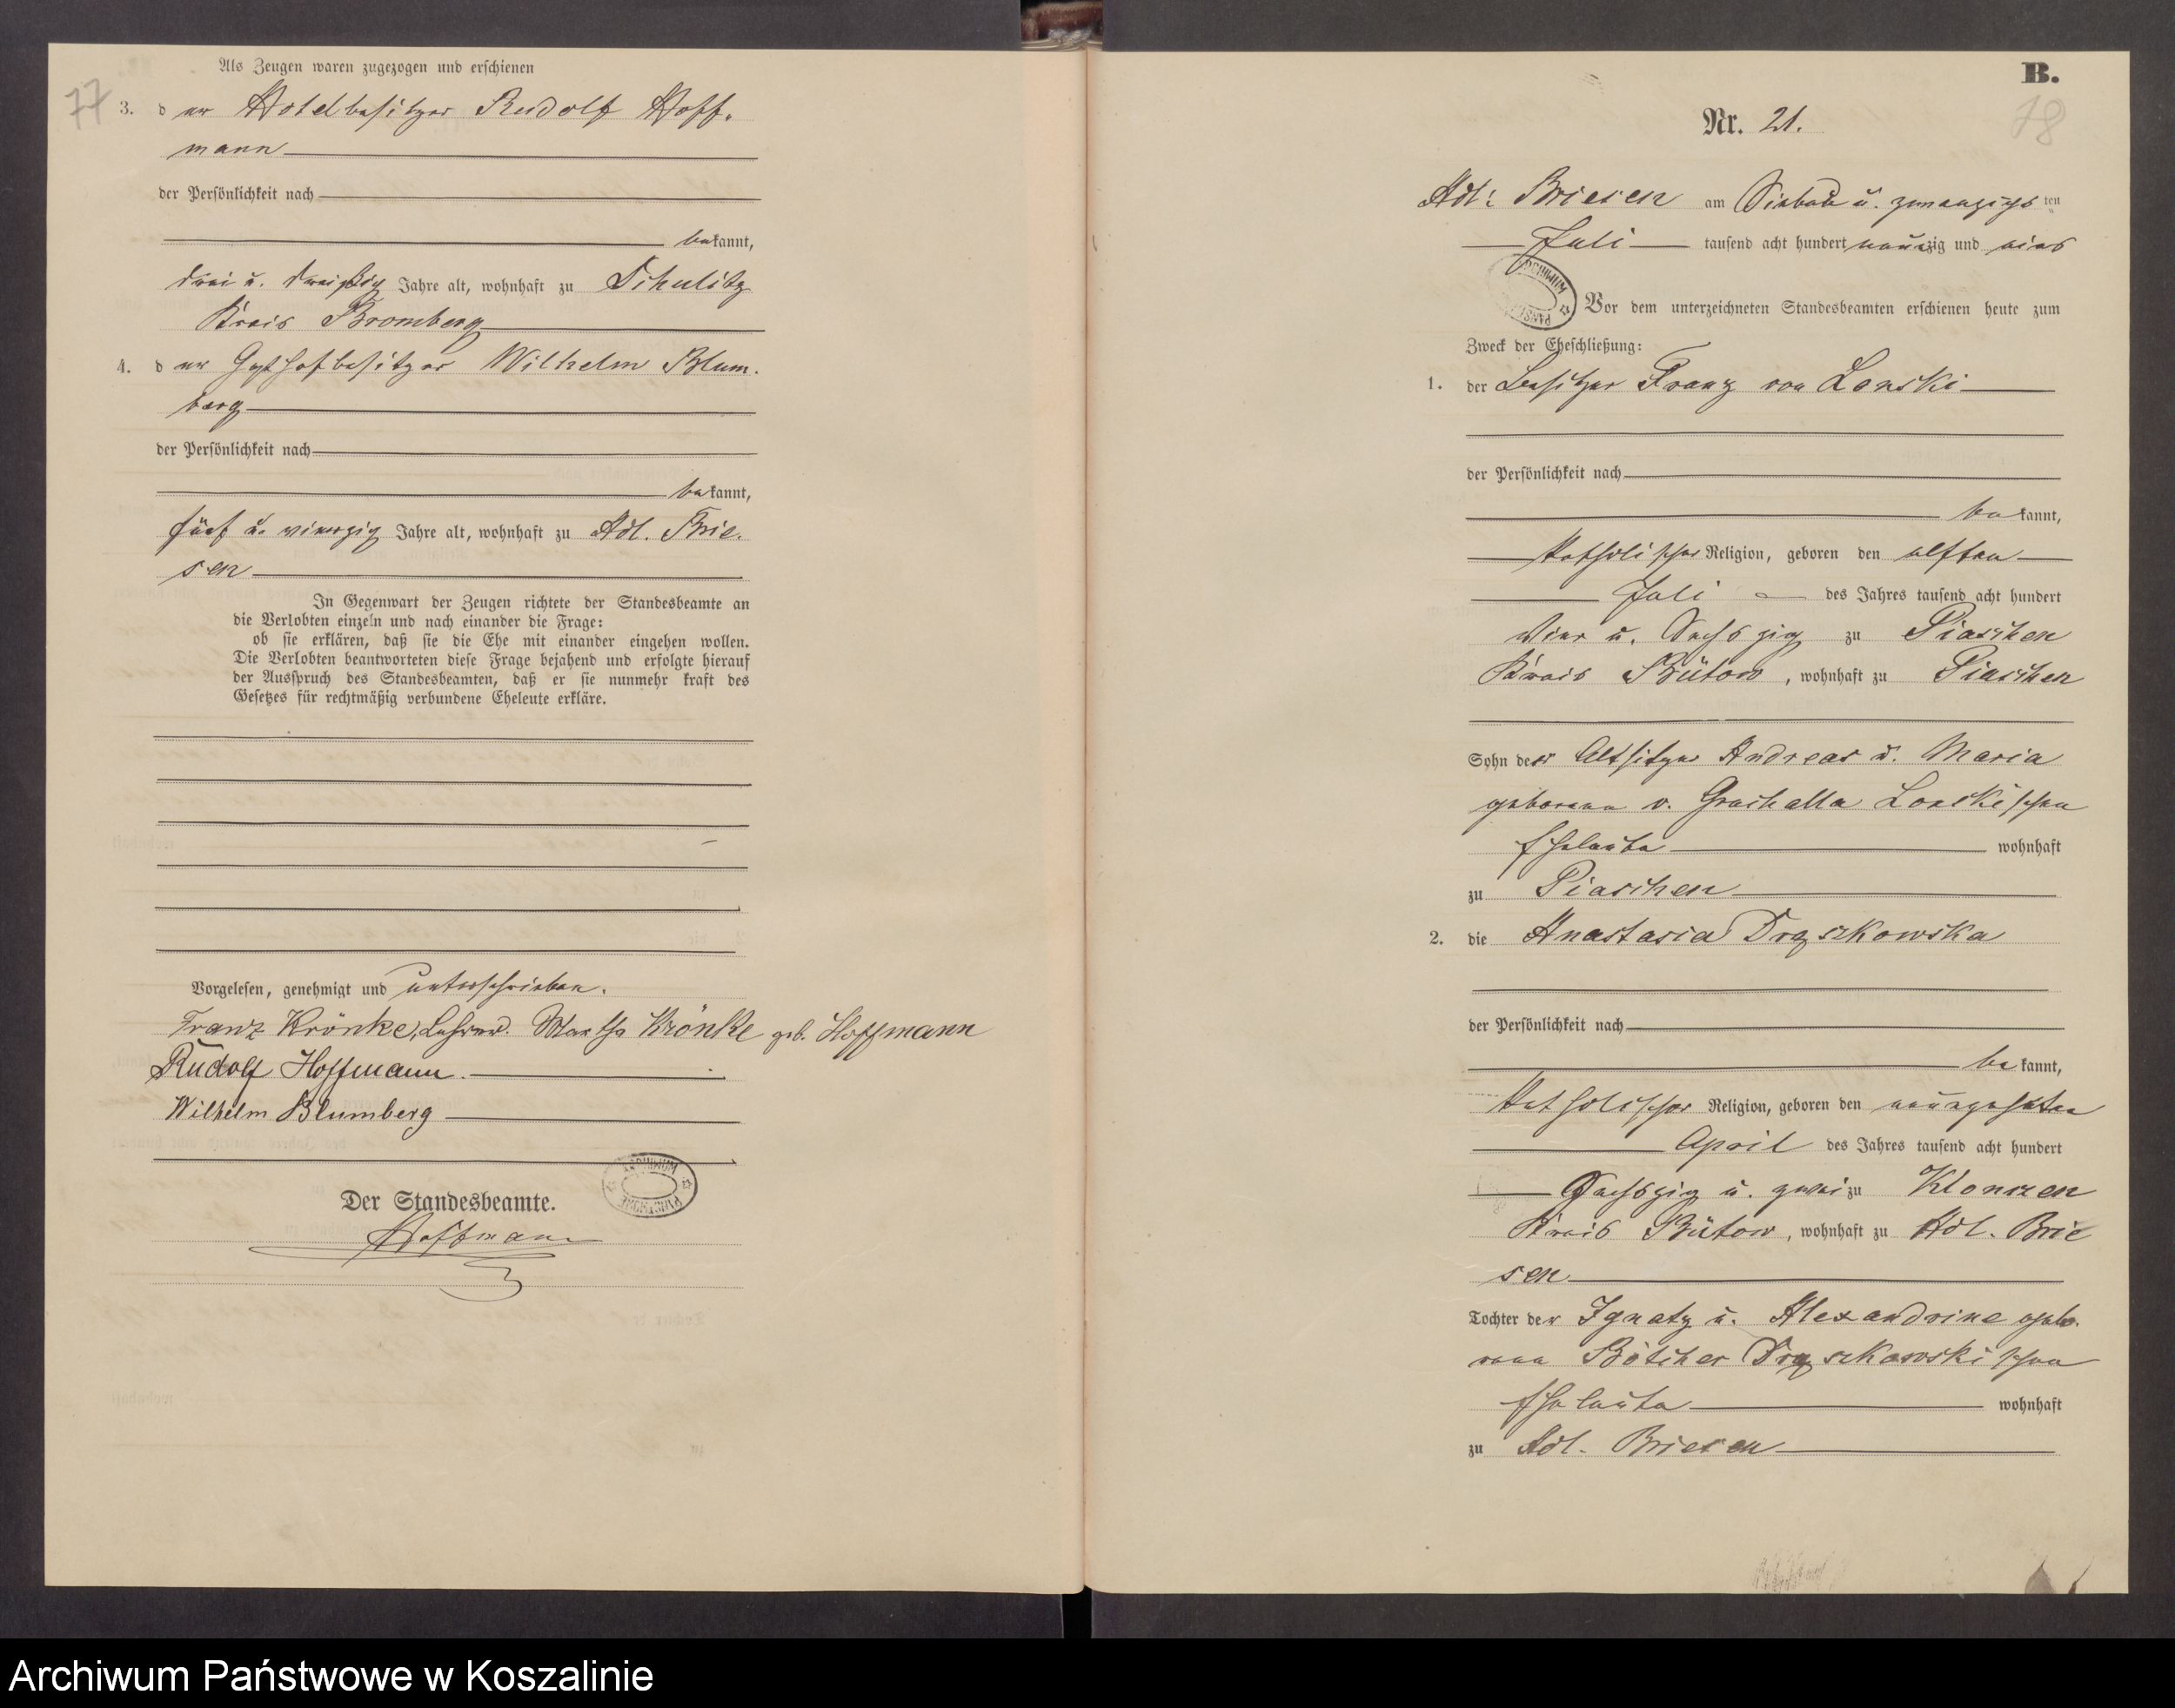 77
Als Zeugen waren zugezogen und erschienen
3. der Hotelbesitzer Rudolf Hoff-
mann
der Persönlichkeit nach
bekannt,
drei u. dreißig Jahre alt, wohnhaft zu Schulitz
Kreis Bromberg
4. der Gasthofbesitzer Wilhelm Blum-
berg
der Persönlichkeit nach
bekannt,
fünf u. vierzig Jahre alt, wohnhaft zu Adl. Brie-
sen
In Gegenwart der Zeugen richtete der Standesbeamte an
die Verlobten einzeln und nach einander die Frage:
ob sie erklären, daß sie die Ehe mit einander eingehen wollen.
Die Verlobten beantworteten diese Frage bejahend und erfolgte hierauf
der Ausspruch des Standesbeamten, daß er sie nunmehr kraft des
Gesetzes für rechtmäßig verbundene Eheleute erkläre.
Vorgelesen, genehmigt und unterschrieben.
Franz Krönke, Lehrer. Martha Krönke geb. Hoffmann
Rudolf Hoffmann.
Wilhelm Blumberg
ARCHIWUM PAŃSTWOWE
Der Standesbeamte.
Hoffmann
B.
78
Nr. 21.
Adl. Briesen am Sieben u. zwanzigsten
Juli tausend acht hundert neunzig und eins
ARCHIWUM PAŃSTWOWE
Vor dem unterzeichneten Standesbeamten erschienen heute zum
Zweck der Eheschließung:
1. der Besitzer Franz von Lonski
der Persönlichkeit nach
bekannt,
katholischer Religion, geboren den elften
Juli des Jahres tausend acht hundert
vier u. Sechszig zu Piaschen
Kreis Bütow, wohnhaft zu Piaschen
Sohn der Altsitzer Andreas u. Maria
geborene v. Lonskischen
Eheleute wohnhaft
zu Piaschen
2. die Anastasia Drąszkowska
der Persönlichkeit nach
bekannt,
katholischer Religion, geboren den neunzehnten
April des Jahres tausend acht hundert
Sechszig u. zwei zu Klonczen
Kreis Bütow, wohnhaft zu Adl. Brie
sen
Tochter der Ignatz u. Alexandrine gebo-
rene Bötcher Drąszkowskischen
Eheleute wohnhaft
zu Adl. Briesen
Archiwum Państwowe w Koszalinie